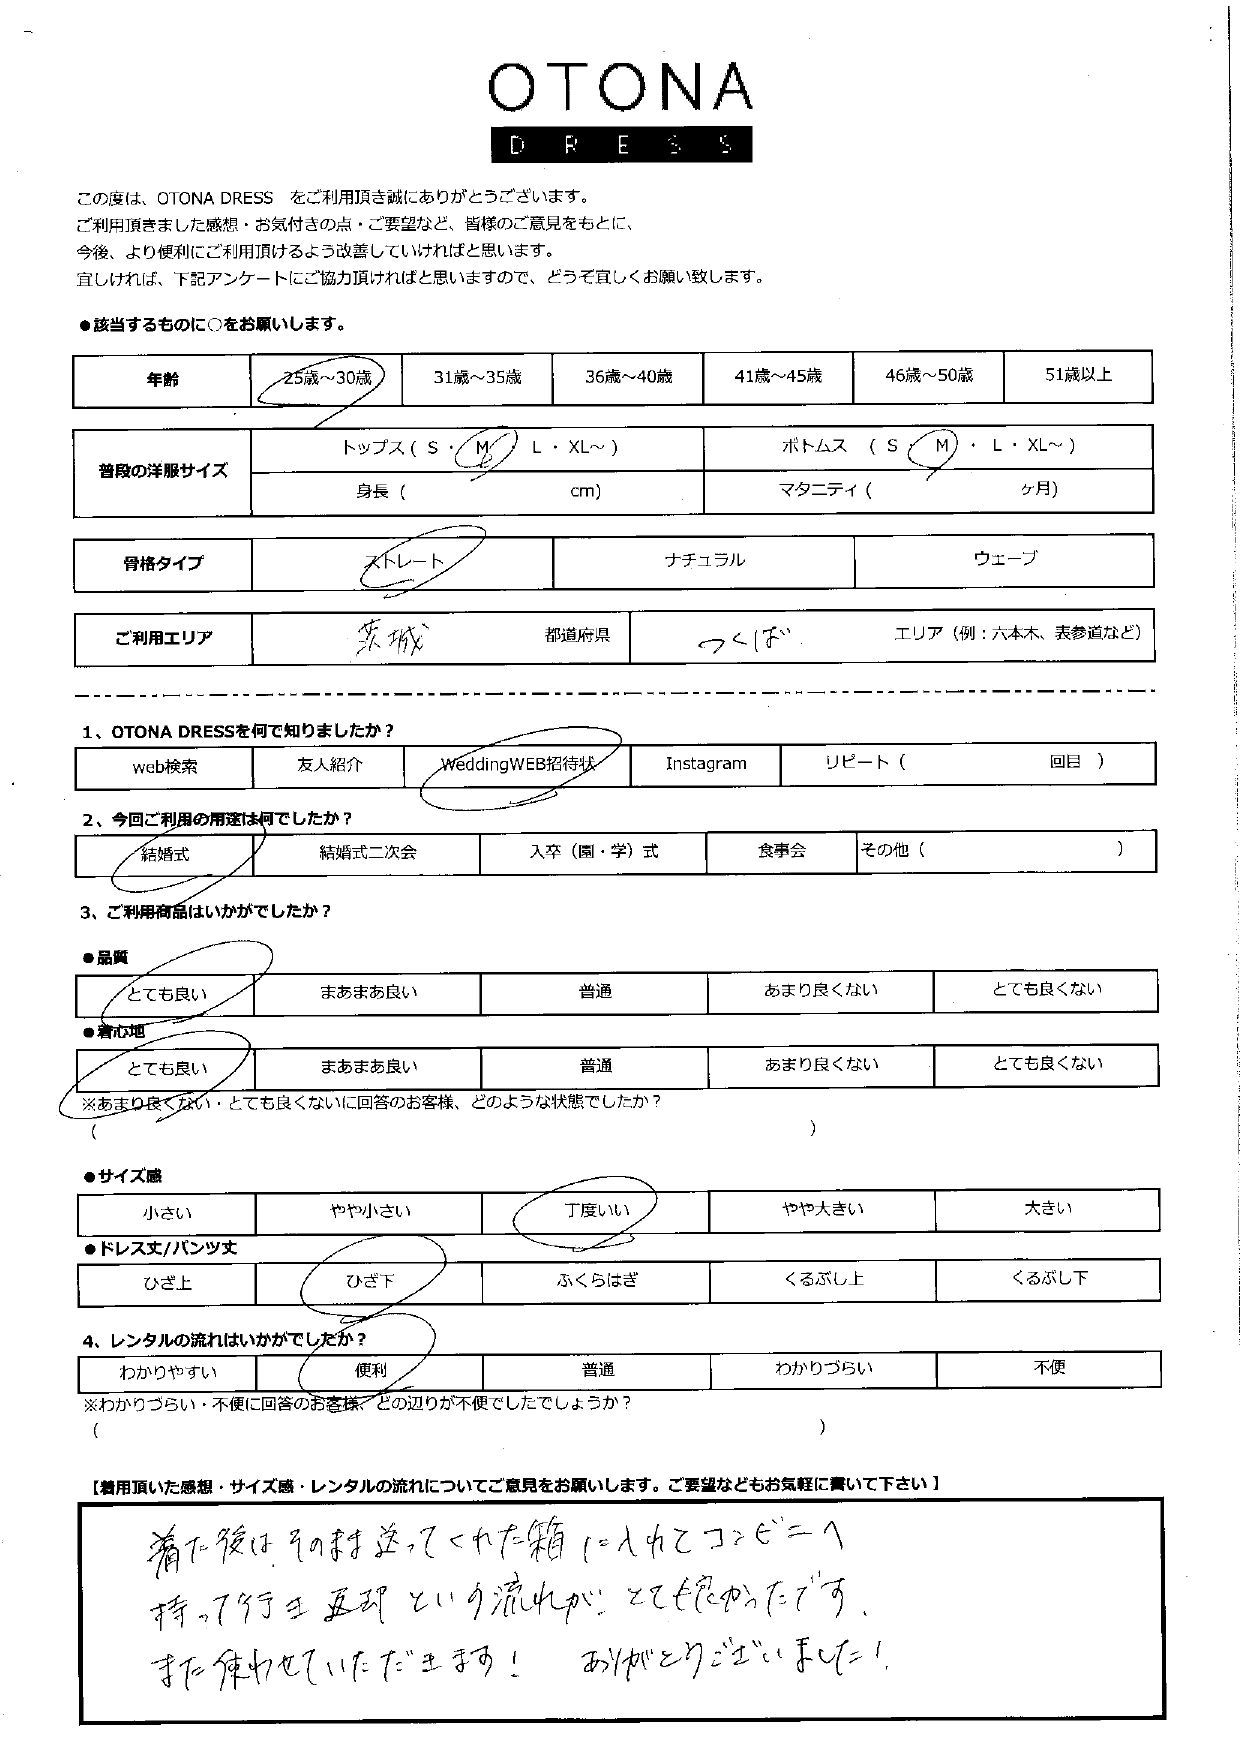 OTONA
DRESS
この度は、OTONA DRESS をご利用頂き誠にありがとうございます。
ご利用頂きました感想・お気付きの点・ご要望など、皆様のご意見をもとに、
今後、より便利にご利用頂けるよう改善していければと思います。
宜しければ、下記アンケートにご協力頂ければと思いますので、どうぞ宜しくお願い致します。
●該当するものに○をお願いします。
年齢 25歳～30歳 31歳～35歳 36歳～40歳 41歳～45歳 46歳～50歳 51歳以上
普段の洋服サイズ トップス（ S ・ M ・ L ・ XL～ ） ボトムス （ S ・ M ・ L ・ XL～ ）
身長（ cm） マタニティ（ ヶ月）
骨格タイプ ストレート ナチュラル ウェーブ
ご利用エリア 茨城 都道府県 つくば エリア（例：六本木、表参道など）
1、OTONA DRESSを何で知りましたか？
web検索 友人紹介 WeddingWEB招待状 Instagram リピート（ 回目 ）
2、今回ご利用の用途は何でしたか？
結婚式 結婚式二次会 入卒（園・学）式 食事会 その他（ ）
3、ご利用商品はいかがでしたか？
●品質
とても良い まあまあ良い 普通 あまり良くない とても良くない
●着心地
とても良い まあまあ良い 普通 あまり良くない とても良くない
※あまり良くない・とても良くないに回答のお客様、どのような状態でしたか？
（ ）
●サイズ感
小さい やや小さい 丁度いい やや大きい 大きい
●ドレス丈/パンツ丈
ひざ上 ひざ下 ふくらはぎ くるぶし上 くるぶし下
4、レンタルの流れはいかがでしたか？
わかりやすい 便利 普通 わかりづらい 不便
※わかりづらい・不便に回答のお客様、どの辺りが不便でしたでしょうか？
（ ）
【着用頂いた感想・サイズ感・レンタルの流れについてご意見をお願いします。ご要望などもお気軽に書いて下さい】
着た後は そのまま送ってくれた箱に入れてコンビニへ
持って行き返却という流れが、とても良かったです。
また使わせていただきます！ ありがとうございました！